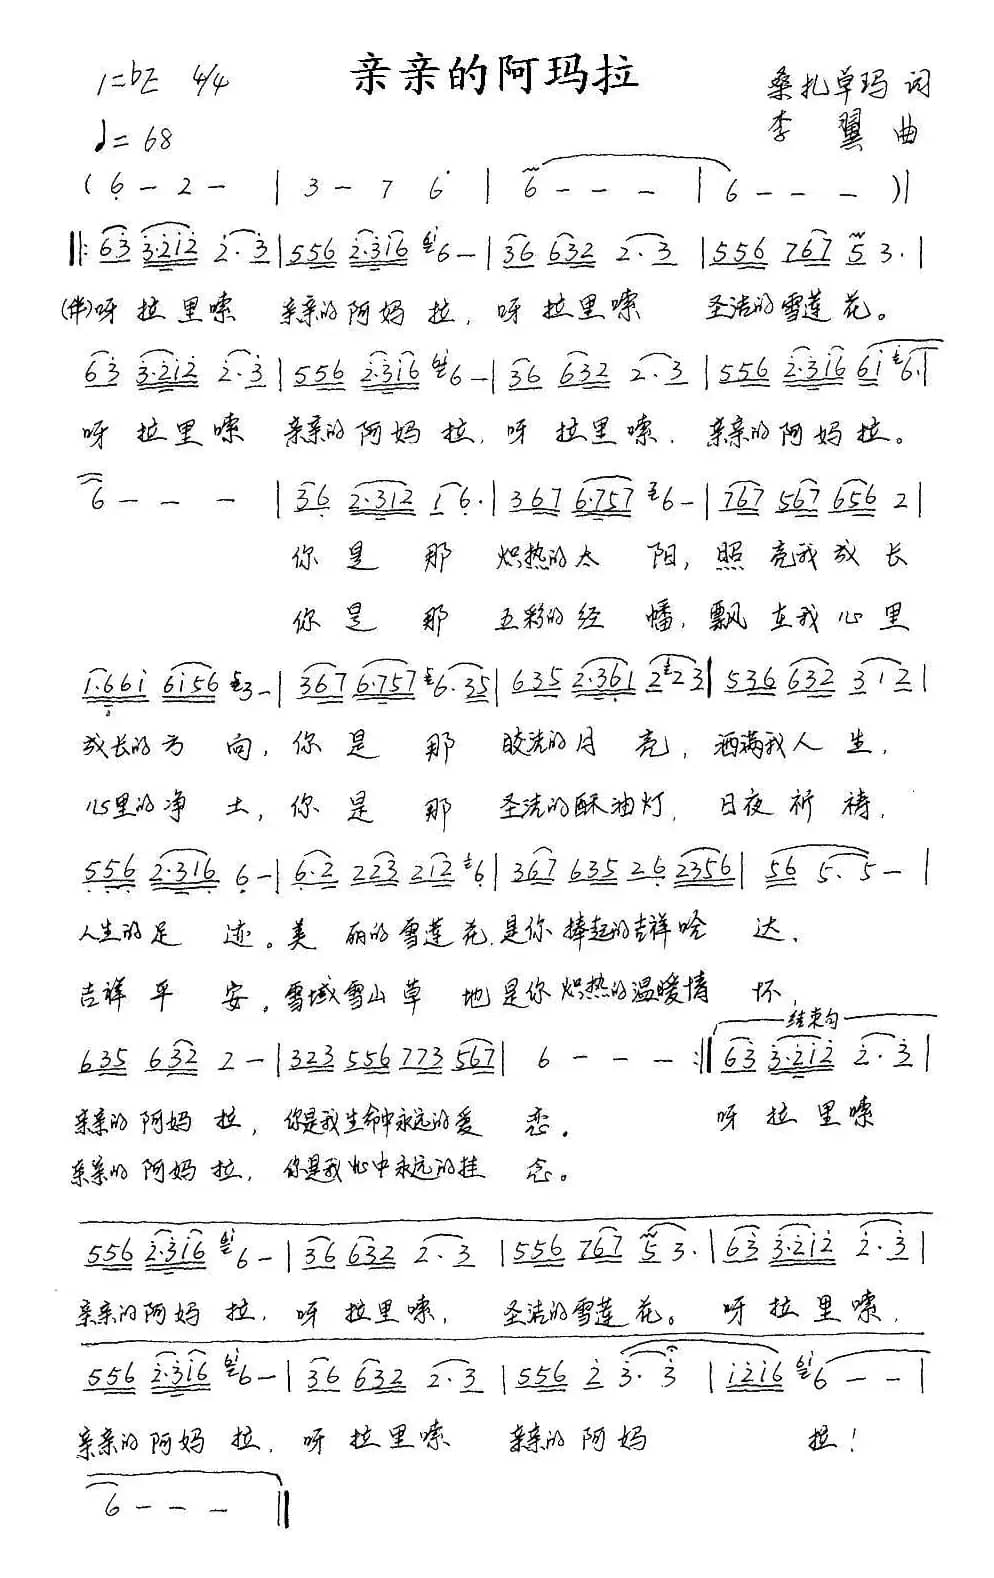 亲亲的阿玛拉
1=bE 4/4
桑扎卓玛 词
♩=68
李 翼 曲
( 6 - 2 - | 3 - 7 6 | 6 - - - | 6 - - - )|
‖: 63 3·212 2·3 | 556 2·316 6 - | 36 632 2·3 | 556 767 5 3· |
(伴)呀拉里嗦 亲亲的阿妈拉，呀拉里嗦 圣洁的雪莲花。
63 3·212 2·3 | 556 2·316 6 - | 36 632 2·3 | 556 2·316 61 6· |
呀拉里嗦 亲亲的阿妈拉，呀拉里嗦，亲亲的阿妈拉。
6 - - - | 36 2·312 16· | 367 6·757 6 - | 767 567 656 2 |
你是那 炽热的太阳，照亮我成长
你是那 五彩的经幡，飘在我心里
1·661 6156 3 - | 367 6·757 6·35 | 635 2·361 223 | 536 632 312 |
成长的方向，你是那 皎洁的月亮，洒满我人生，
心里的净土，你是那 圣洁的酥油灯，日夜祈祷，
556 2·316 6 - | 6·2 223 212 6 | 367 635 26 2356 | 56 5· 5 - |
人生的足迹。美丽的雪莲花，是你捧起的吉祥哈达、
吉祥平安。雪域雪山草地是你炽热的温暖情怀，
结束句
635 632 2 - | 323 556 773 567 | 6 - - - :‖ 63 3·212 2·3 |
亲亲的阿妈拉，你是我生命中永远的爱恋。 呀拉里嗦
亲亲的阿妈拉，你是我心中永远的挂念。
556 2·316 6 - | 36 632 2·3 | 556 767 5 3· | 63 3·212 2·3 |
亲亲的阿妈拉，呀拉里嗦，圣洁的雪莲花。呀拉里嗦，
556 2·316 6 - | 36 632 2·3 | 556 2 3· 3 | 1216 6 - - |
亲亲的阿妈拉，呀拉里嗦 亲亲的阿妈 拉！
6 - - - ‖